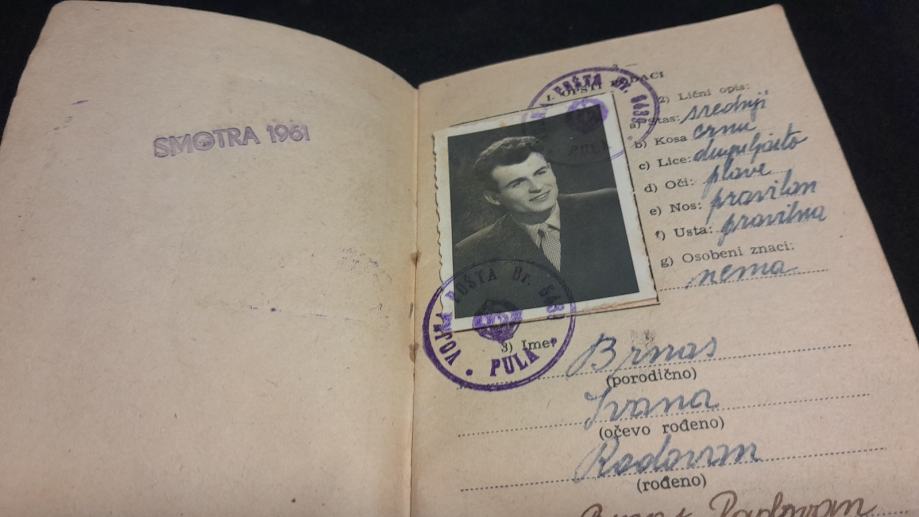 SMOTRA 1961
I. OPŠTI PODACI
2) Lični opis:
a) Stas: srednji
b) Kosa crnu
c) Lice: duguljasto
d) Oči: plave
e) Nos: pravilan
f) Usta: pravilna
g) Osobeni znaci:
nema
POŠTA Br. 5439
PULA
VOJNA POŠTA Br. 5439
PULA
3) Ime:
Brnas
(porodično)
Ivana
(očevo rođeno)
Radovan
(rođeno)
Radovan